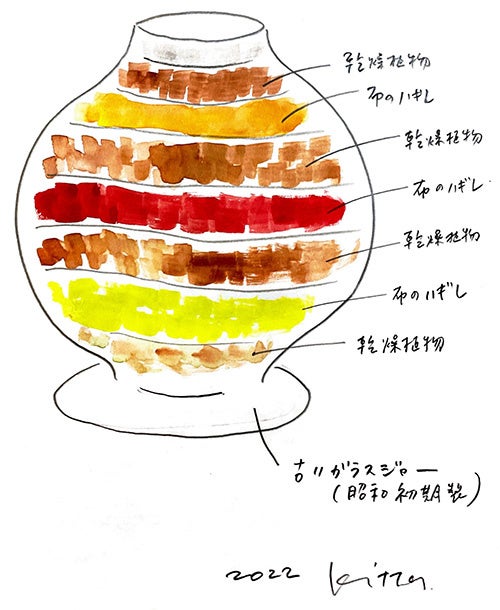 乾燥植物
布のハギレ
乾燥植物
布のハギレ
乾燥植物
布のハギレ
乾燥植物
古いガラスジャー
(昭和初期製)
2022 Kita